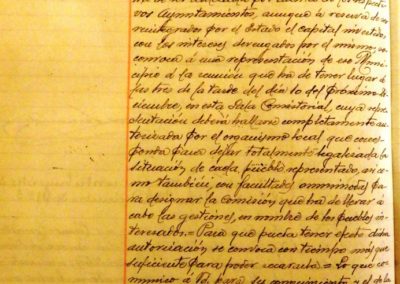 vos Ayuntamientos, aunque a reserva de ser
reintegrado por el Estado el capital invertido,
con los intereses devengados por el mismo, se
convoca á una representación de ese Muni-
cipio á la reunión que ha de tener lugar á
las tres de la tarde del día 10 del próximo Di-
ciembre, en esta Sala Consistorial, cuya repre-
sentación deberá hallarse completamente au-
torizada por el organismo local que corres-
ponda para dejar totalmente legalizada la
situación de cada pueblo representado, asi co-
mo también, con facultades omnímodas pa-
ra designar la Comisión que ha de llevar á
cabo las gestiones, en nombre de los pueblos in-
teresados.= Para que pueda tener efecto dicha
autorización se convoca con tiempo más que
suficiente para poder recabarla = Lo que co-
munico á V. para su conocimiento y el de la